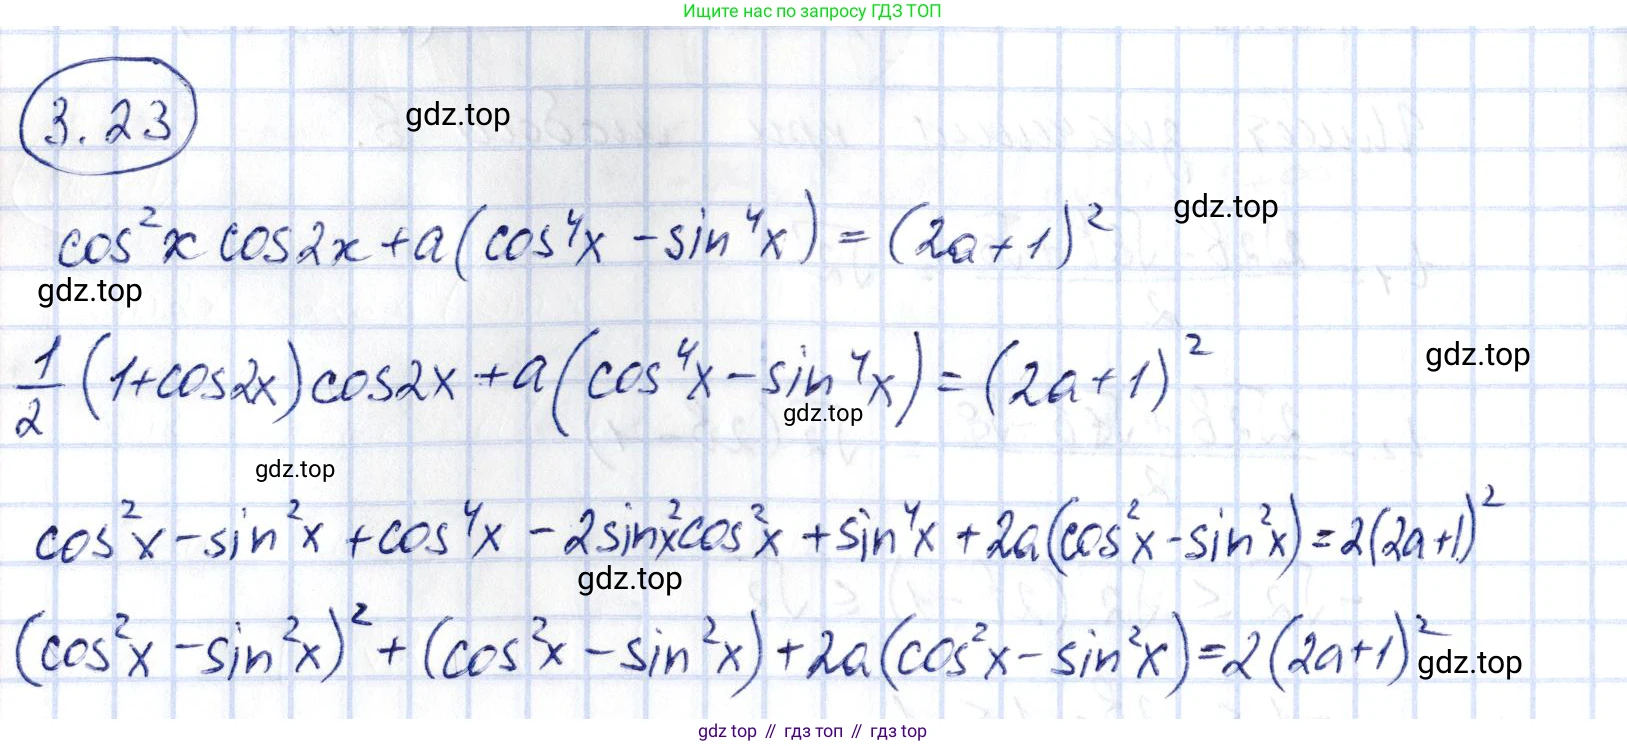 Ищите нас по запросу ГДЗ ТОП
3.23
gdz.top
cos²x cos2x + a(cos⁴x - sin⁴x) = (2a+1)²
gdz.top
gdz.top
1/2 (1+cos2x) cos2x + a(cos⁴x - sin⁴x) = (2a+1)²
gdz.top
gdz.top
gdz.top
cos²x - sin²x + cos⁴x - 2sin²x cos²x + sin⁴x + 2a(cos²x - sin²x) = 2(2a+1)²
gdz.top
(cos²x - sin²x)² + (cos²x - sin²x) + 2a(cos²x - sin²x) = 2(2a+1)²
gdz.top
gdz top // гдз топ // гдз top